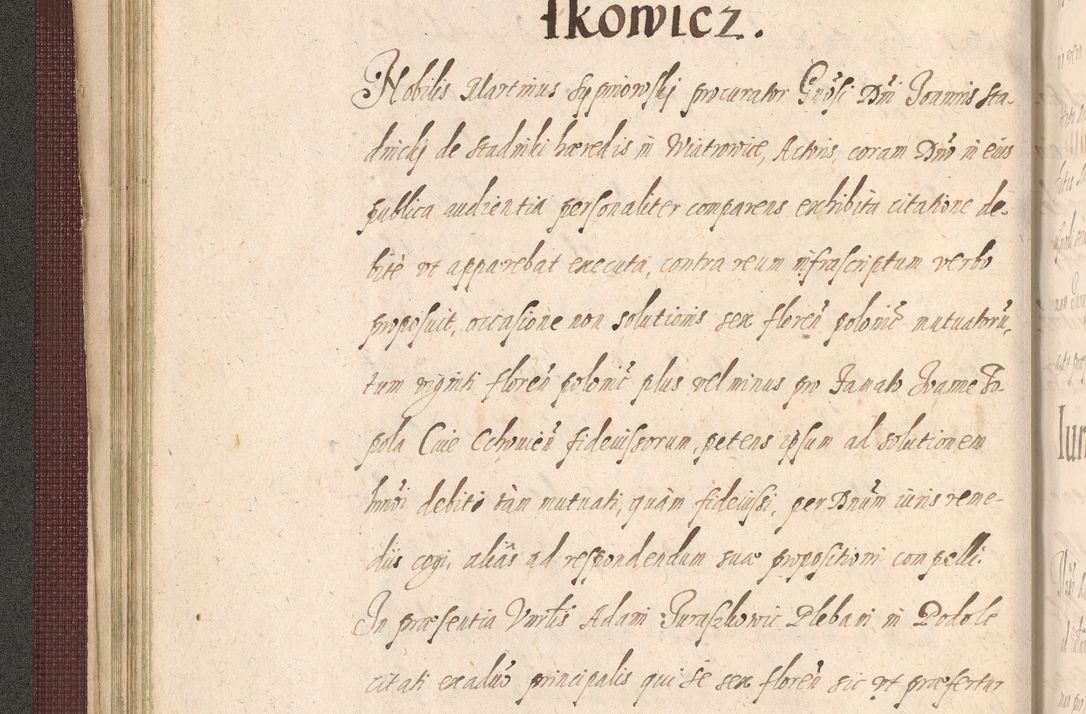 Ikowicz.
Nobilis Martinus Sypniowskj procurator Gnosi Dni Joannis Sta-
dnickj de Stadniki hæredis in Wiatrowice, Actoris, coram Dno in eius
publica audientia personaliter comparens exhibita citatione de-
bitè vt apparebat executa, contra reum infrascriptum verbo
proposuit, occasione non solutionis sex floren̄ polonic̄ mutuatorū,
tum viginti floren̄ polonic̄ plus vel minus pro Famato Joanne To-
pola Ciue Cchouien̄ fideiussorum, petens ipsum ad solutionem
hmōi debiti tàm mutuati, quàm fideiussi, per Dnum iuris reme-
diis cogi, aliâs ad respondendum suæ propositioni compelli.
In præsentia Vnrlis Adami Juraszkowic Plebani in Podole
citati ex aduo principalis qui se sex floren̄ sic vt præfertur